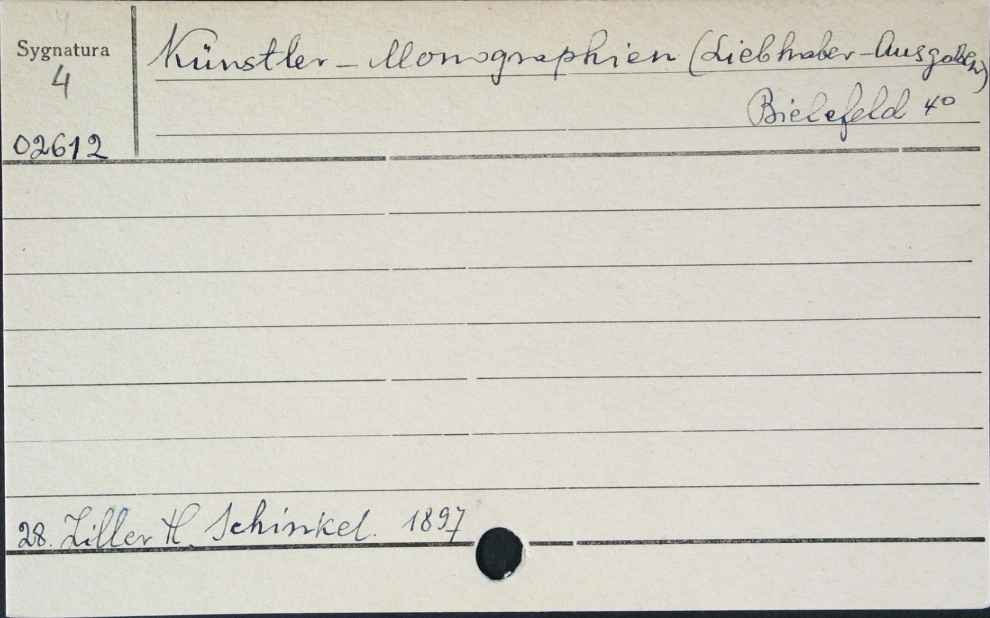 Sygnatura
4
02612
Künstler-Monographien (Liebhaber-Ausgaben)
Bielefeld 4°
28. Ziller H. Schinkel. 1897